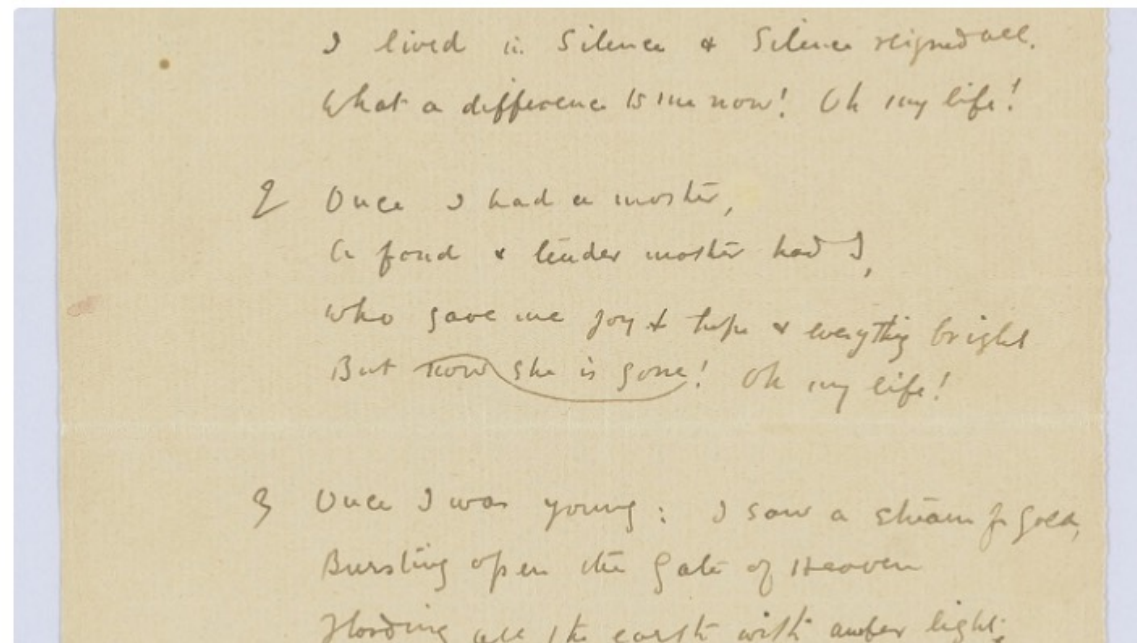 I lived in Silence & Silence reigned all.
What a difference to me now! Oh my life!
2 Once I had a mother,
A fond & tender mother had I,
Who gave me joy & hope & everything bright
But now she is gone! Oh my life!
3 Once I was young: I saw a stream of gold,
Bursting open the Gate of Heaven
Flooding all the earth with amber light;